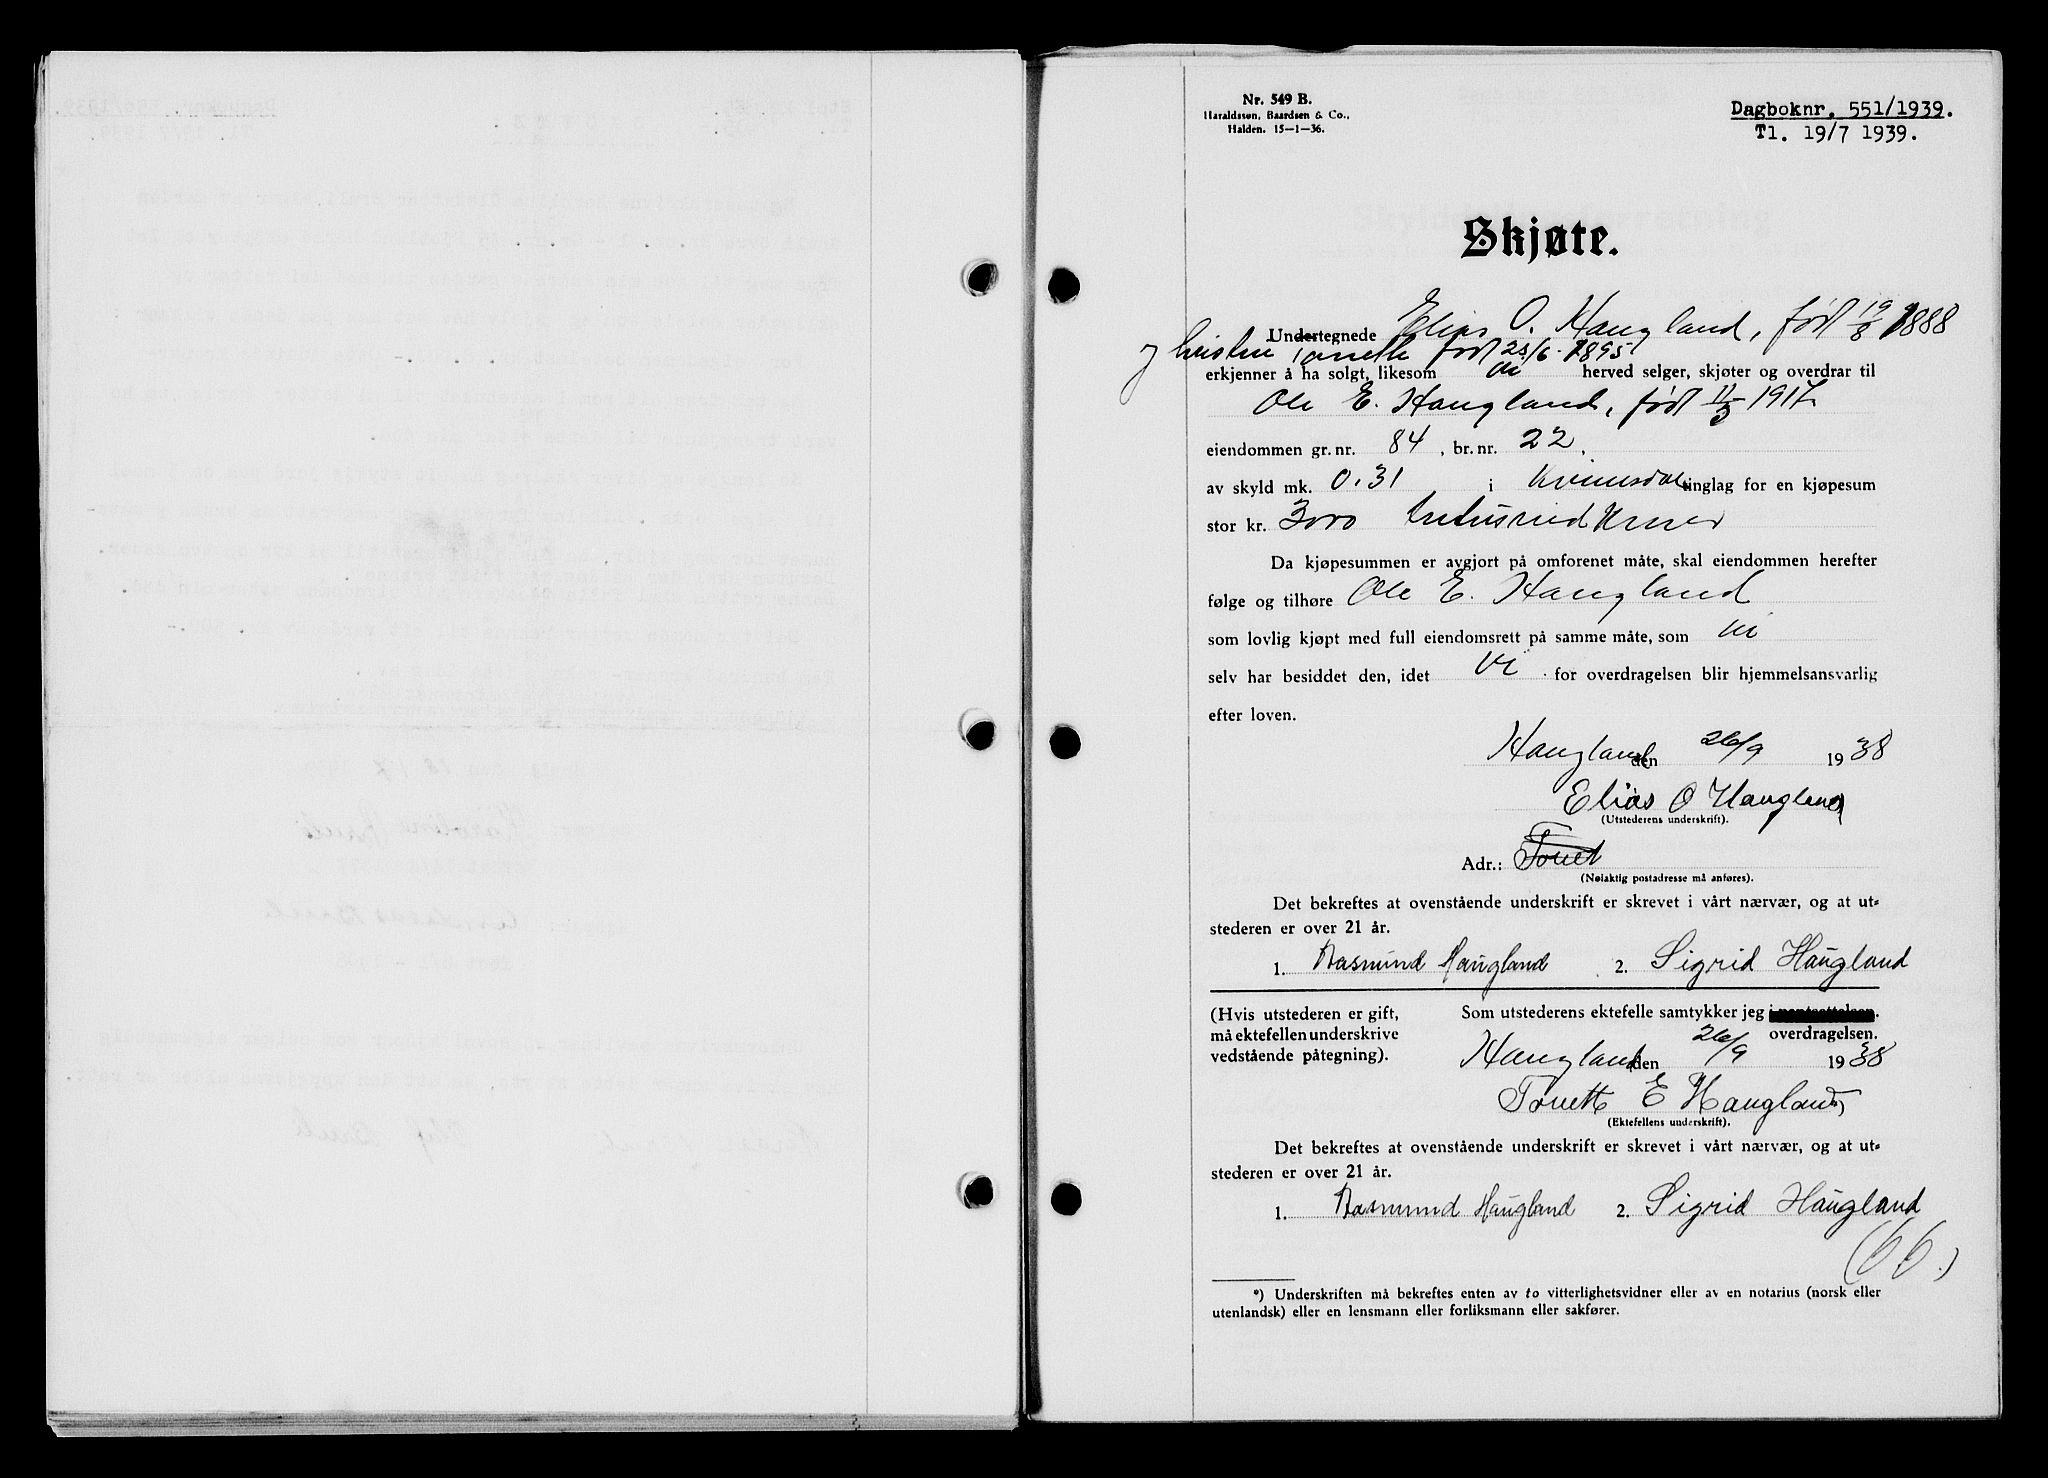 Nr. 549 B.
Haraldssøn, Baardsen & Co.,
Halden. 15-1-36.
Dagboknr. 551/1939.
Tl. 19/7 1939.
Skjøte.
Undertegnede Elias O. Haugland, født 19/8 1888
og hustru Tonette født 25/6 1895
erkjenner å ha solgt, likesom vi herved selger, skjøter og overdrar til
Ole E. Haugland, født 11/3 1917
eiendommen gr. nr. 84, br. nr. 22,
av skyld mk. 0.31 i Kvinesdal tinglag for en kjøpesum
stor kr. 3000 kroner
Da kjøpesummen er avgjort på omforenet måte, skal eiendommen herefter
følge og tilhøre Ole E. Haugland
som lovlig kjøpt med full eiendomsrett på samme måte, som vi
selv har besiddet den, idet vi for overdragelsen blir hjemmelsansvarlig
efter loven.
Haugland den 26/9 1938
Elias O Haugland
(Utstederens underskrift).
Adr.: Tonet
(Nøiaktig postadresse må anføres).
Det bekreftes at ovenstående underskrift er skrevet i vårt nærvær, og at ut-
stederen er over 21 år.
1. Rasmund Haugland 2. Sigrid Haugland
(Hvis utstederen er gift, Som utstederens ektefelle samtykker jeg
må ektefellen underskrive overdragelsen.
vedstående påtegning). Haugland den 26/9 1938
Tonette E Haugland
(Ektefellens underskrift).
Det bekreftes at ovenstående underskrift er skrevet i vårt nærvær, og at ut-
stederen er over 21 år.
1. Rasmund Haugland 2. Sigrid Haugland
(66.)
*) Underskriften må bekreftes enten av to vitterlighetsvidner eller av en notarius (norsk eller
utenlandsk) eller en lensmann eller forliksmann eller sakfører.